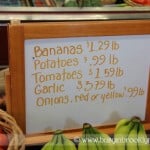 Bananas $1.29 lb
Potatoes $.99 lb
Tomatoes $1.59 lb
Garlic $3.79 lb
Onions, red or yellow $.99 lb